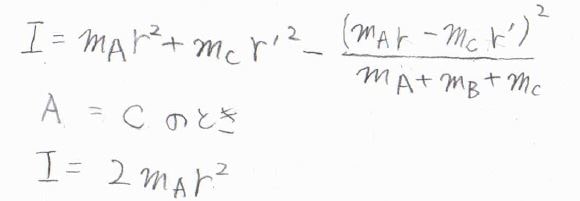 I = m_A r² + m_C r'² − (m_A r − m_C r')² / (m_A + m_B + m_C)
A = C のとき
I = 2 m_A r²